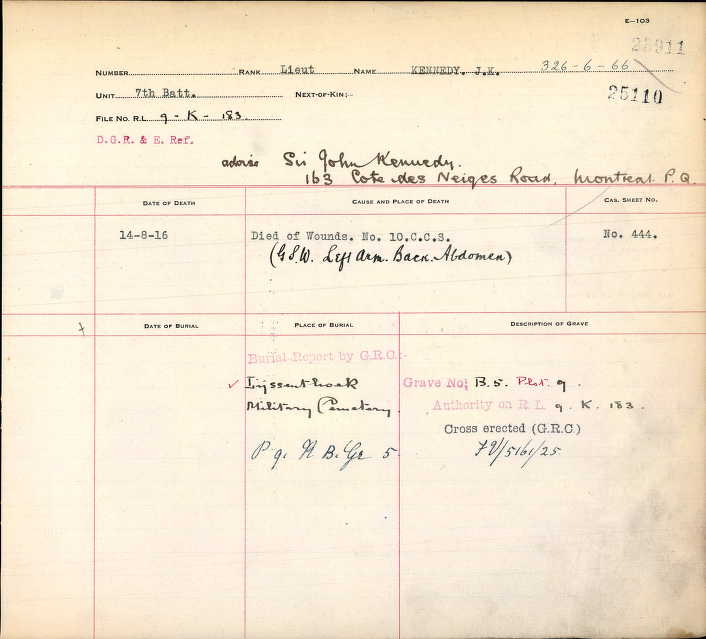 E-103
23911
NUMBER RANK Lieut NAME KENNEDY. J.K. 326-6-66
UNIT 7th Batt. NEXT-OF-KIN:-
25110
FILE NO. R.L. 9-K-183
D.G.R. & E. Ref.
advise Sir John Kennedy.
163 Cote des Neiges Road, Montreal P.Q.
DATE OF DEATH CAUSE AND PLACE OF DEATH CAS. SHEET NO.
14-8-16 Died of Wounds. No. 10.C.C.S. No. 444.
(G.S.W. Left Arm. Back. Abdomen)
DATE OF BURIAL PLACE OF BURIAL DESCRIPTION OF GRAVE
Burial Report by G.R.C:-
Lijssenthoek Grave No; B.5. Plot. 9.
Military Cemetery. Authority on R.L. 9. K. 183.
Cross erected (G.R.C)
P 9. R B. Gr 5 /5161/25